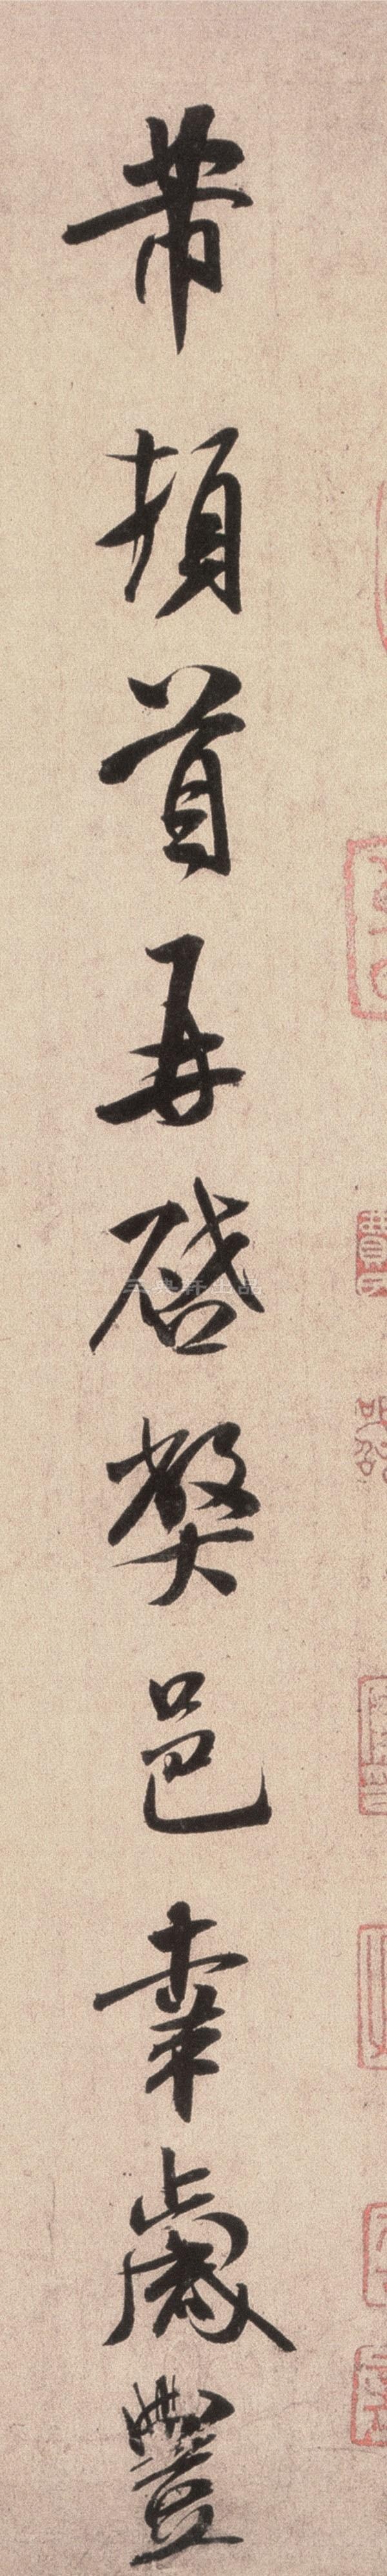 芾頓首再啓弊邑幸歲豐